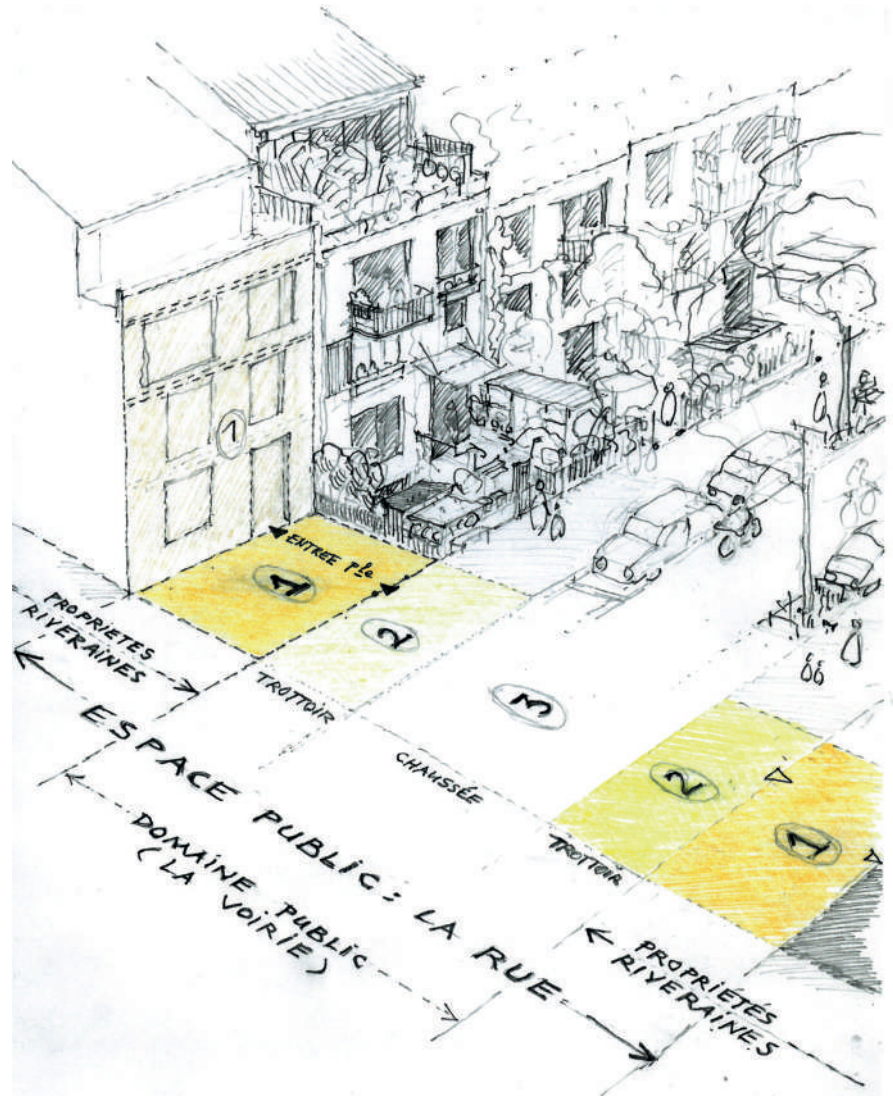 1
ENTREE Ple
1
2
3
2
1
PROPRIETES
RIVERAINES
TROTTOIR
CHAUSSÉE
TROTTOIR
ESPACE PUBLIC: LA RUE
DOMAINE PUBLIC
(LA VOIRIE)
PROPRIETÉS
RIVERAINES